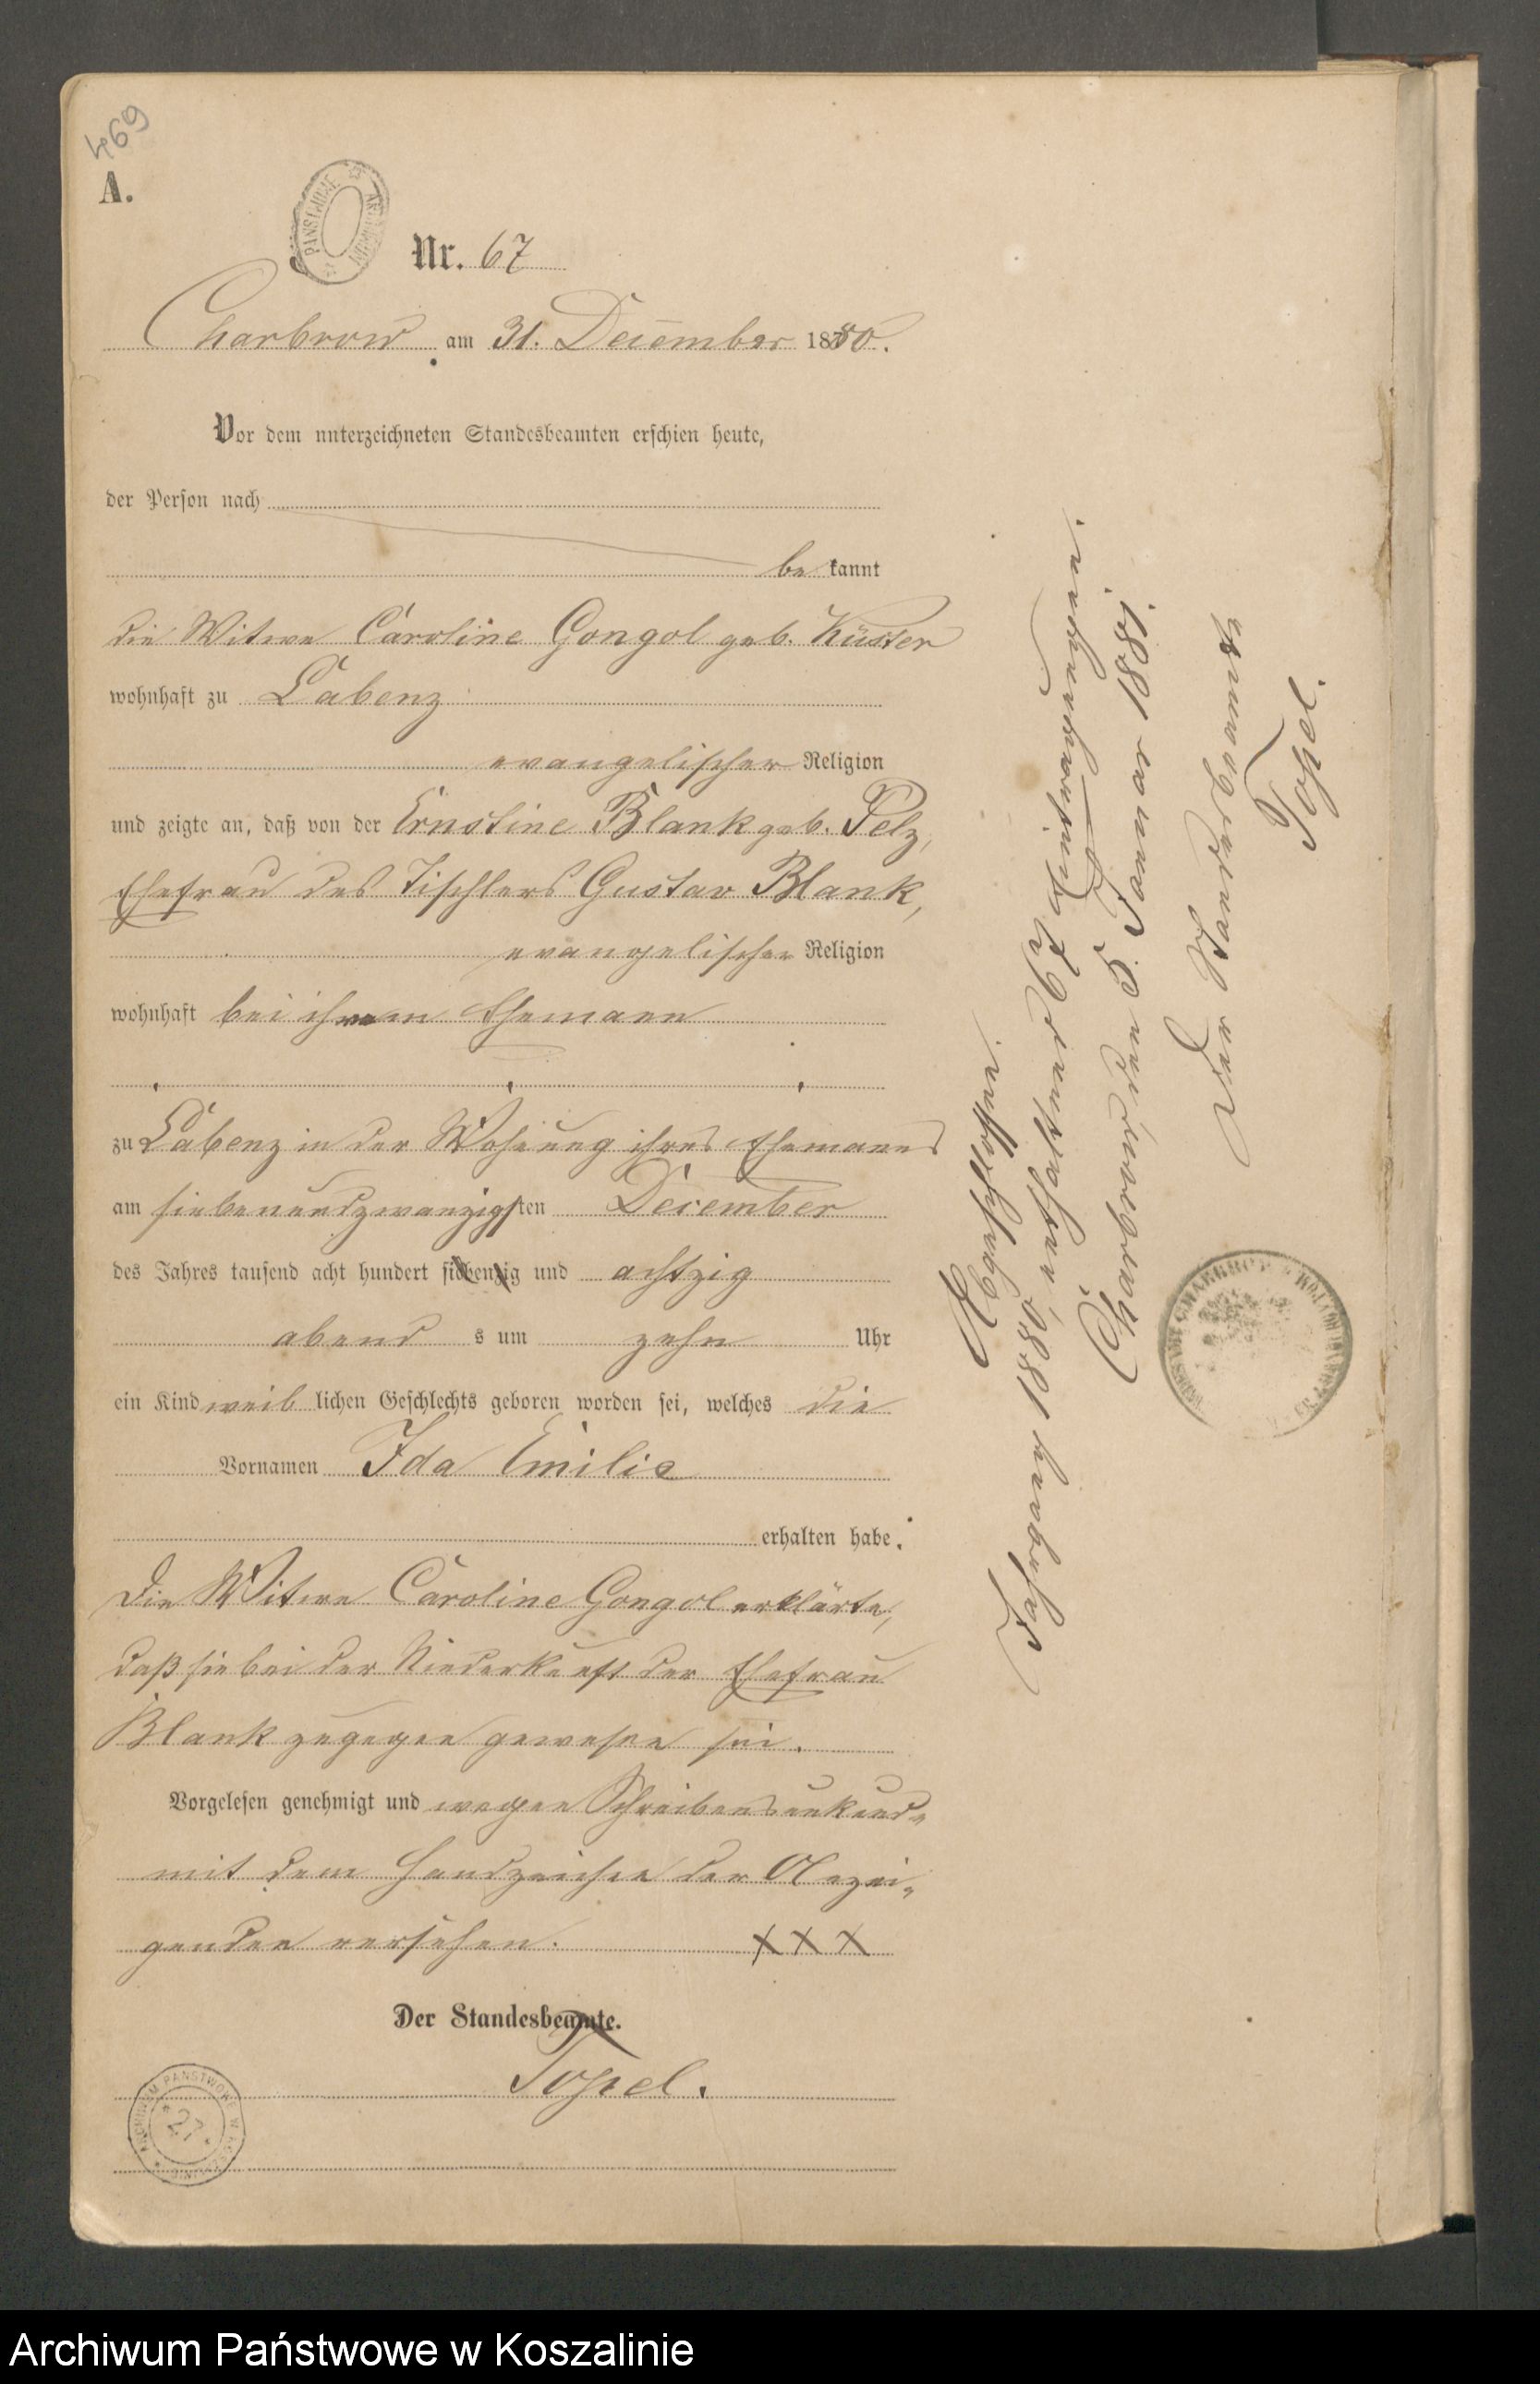 469
A.
Nr. 67
Charbrow am 31. December 1880.
Vor dem unterzeichneten Standesbeamten erschien heute,
der Person nach
bekannt
die Witwe Caroline Gongol geb. Küster
wohnhaft zu Labenz
evangelischer Religion
und zeigte an, daß von der Ernstine Blank geb. Pelz,
Ehefrau des Tischlers Gustav Blank,
evangelischer Religion
wohnhaft bei ihrem Ehemann
zu Labenz in der Wohnung ihres Ehemanns
am siebenundzwanzigsten December
des Jahres tausend acht hundert siebenzig und achtzig
abends um zehn Uhr
ein Kind weiblichen Geschlechts geboren worden sei, welches die
Vornamen Ida Emilie
erhalten habe.
Die Witwe Caroline Gongol erklärte,
daß sie bei der Niederkunft der Ehefrau
Blank zugegen gewesen sei.
Vorgelesen genehmigt und wegen Schreibensunkunde
mit dem Handzeichen der Anzei-
genden versehen. XXX
Der Standesbeamte.
Topel.
Abgeschlossen.
Jahrgang 1880, enthaltend 67 Eintragungen.
Charbrow, den 5. Januar 1881.
Der Standesbeamte
Topel.
27
Archiwum Państwowe w Koszalinie